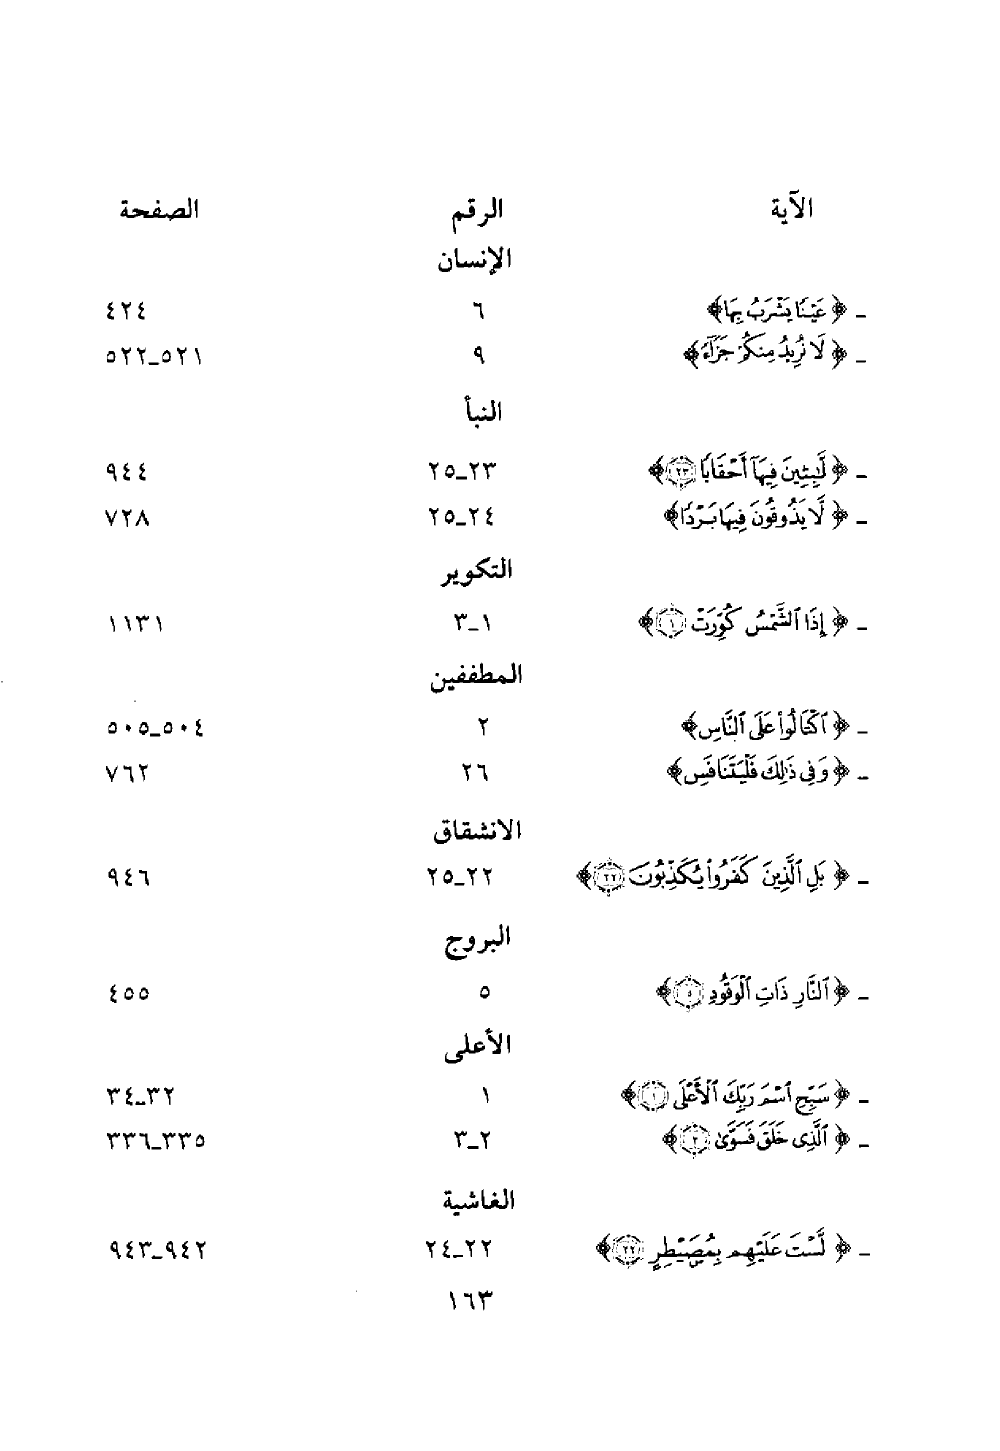 الآية الرقم الصفحة
الإنسان
ـ ﴿عَيْنًا يَشْرَبُ بِهَا﴾ ٦ ٤٢٤
ـ ﴿لَا نُرِيدُ مِنكُمْ جَزَآءً﴾ ٩ ٥٢١ـ٥٢٢
النبأ
ـ ﴿لَّٰبِثِينَ فِيهَآ أَحْقَابًا ٢٣﴾ ٢٣ـ٢٥ ٩٤٤
ـ ﴿لَّا يَذُوقُونَ فِيهَا بَرْدًا﴾ ٢٤ـ٢٥ ٧٢٨
التكوير
ـ ﴿إِذَا ٱلشَّمْسُ كُوِّرَتْ ١﴾ ١ـ٣ ١١٣١
المطففين
ـ ﴿ٱكْتَالُوا۟ عَلَى ٱلنَّاسِ﴾ ٢ ٥٠٤ـ٥٠٥
ـ ﴿وَفِى ذَٰلِكَ فَلْيَتَنَافَسِ﴾ ٢٦ ٧٦٢
الانشقاق
ـ ﴿بَلِ ٱلَّذِينَ كَفَرُوا۟ يُكَذِّبُونَ ٢٢﴾ ٢٢ـ٢٥ ٩٤٦
البروج
ـ ﴿ٱلنَّارِ ذَاتِ ٱلْوَقُودِ ٤﴾ ٥ ٤٥٥
الأعلى
ـ ﴿سَبِّحِ ٱسْمَ رَبِّكَ ٱلْأَعْلَى ١﴾ ١ ٣٢ـ٣٤
ـ ﴿ٱلَّذِى خَلَقَ فَسَوَّىٰ ٢﴾ ٢ـ٣ ٣٣٥ـ٣٣٦
الغاشية
ـ ﴿لَّسْتَ عَلَيْهِم بِمُصَيْطِرٍ ٢٢﴾ ٢٢ـ٢٤ ٩٤٢ـ٩٤٣
١٦٣